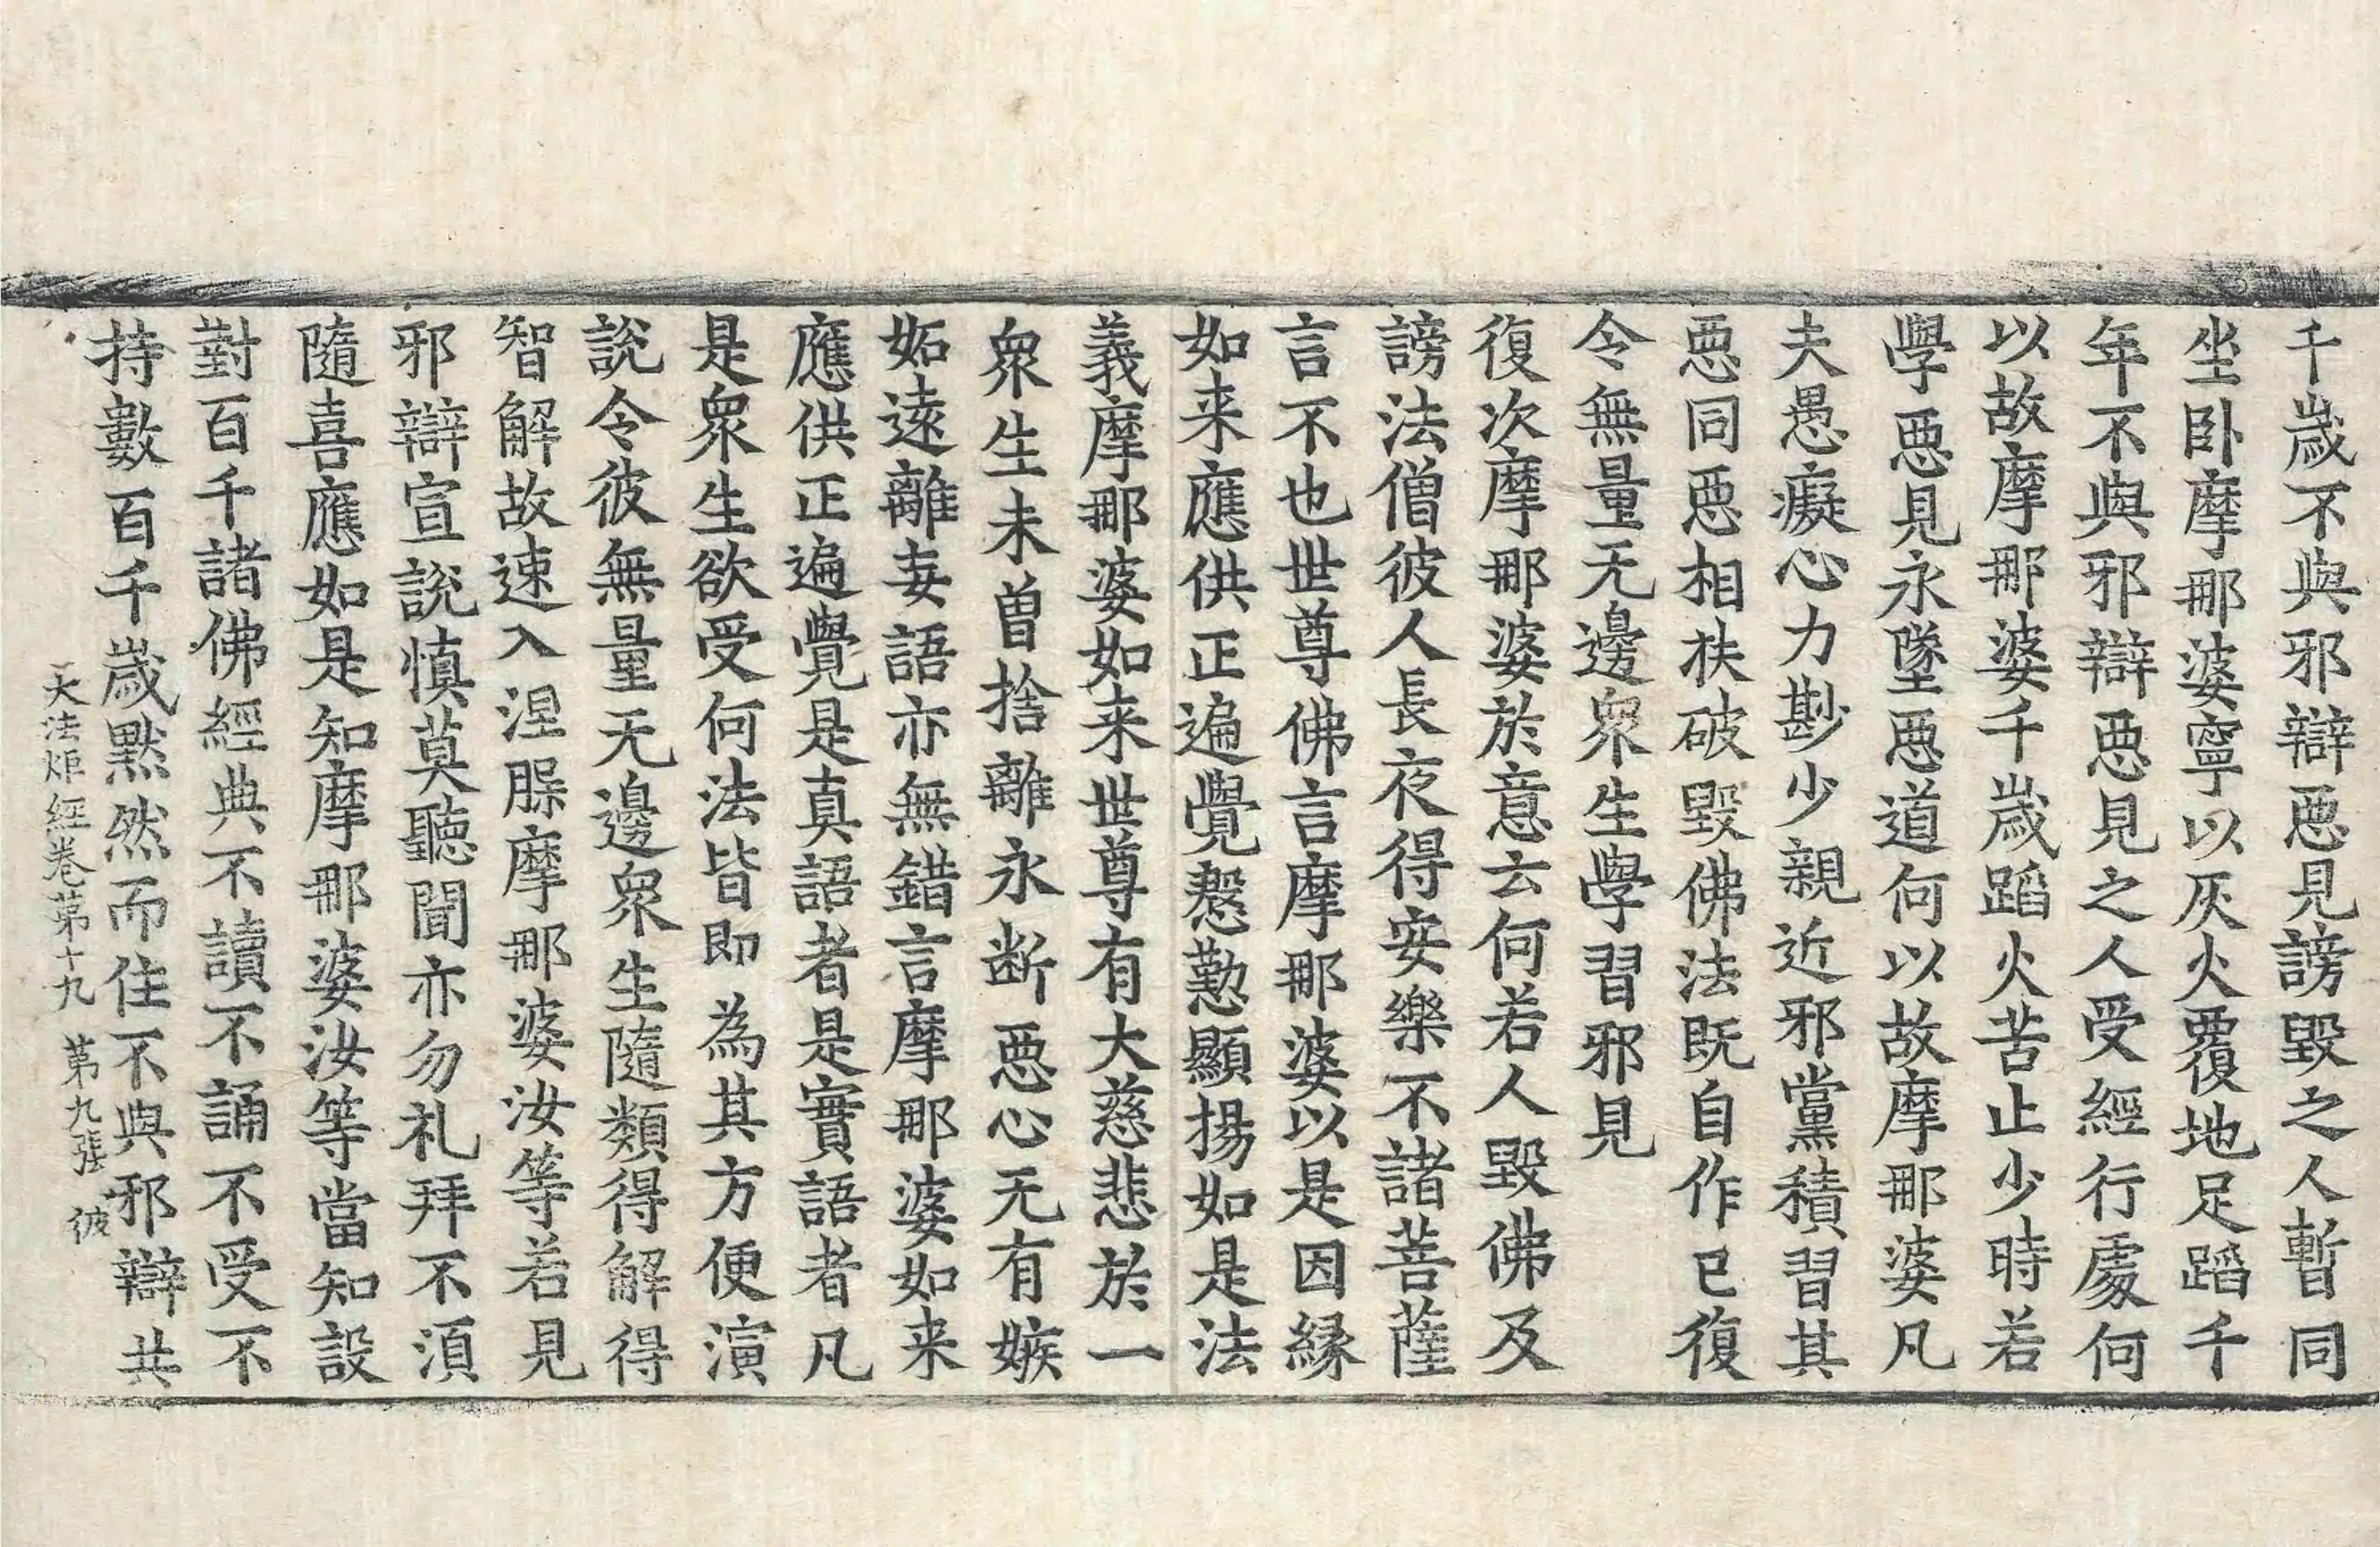 千歲不與邪辯惡見謗毀之人暫同
坐卧摩那婆寧以灰火覆地足蹈千
年不與邪辯惡見之人受經行處何
以故摩那婆千歲蹈火苦止少時若
學惡見永墜惡道何以故摩那婆凡
夫愚癡心力尠少親近邪黨積習其
惡同惡相扶破毀佛法既自作已復
令無量无邊衆生學習邪見
復次摩那婆於意云何若人毀佛及
謗法僧彼人長夜得安樂不諸菩薩
言不也世尊佛言摩那婆以是因縁
如来應供正遍覺慇懃顯揚如是法
義摩那婆如来世尊有大慈悲於一
衆生未曽捨離永断惡心无有嫉
妬遠離妄語亦無錯言摩那婆如来
應供正遍覺是真語者是實語者凡
是衆生欲受何法皆即為其方便演
說令彼無量无邊衆生隨類得解得
智解故速入涅脲摩那婆汝等若見
邪辯宣說慎莫聽聞亦勿礼拜不須
隨喜應如是知摩那婆汝等當知設
對百千諸佛經典不讀不誦不受不
持數百千歲黙然而住不與邪辯共
大法炬經卷第十九 第九張 彼